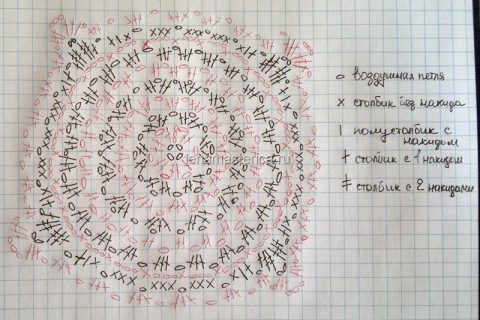 o воздушная петля
x столбик без накида
I полустолбик с
накидом
† столбик с 1 накидом
‡ столбик с 2 накидами
lenamasterica.ru